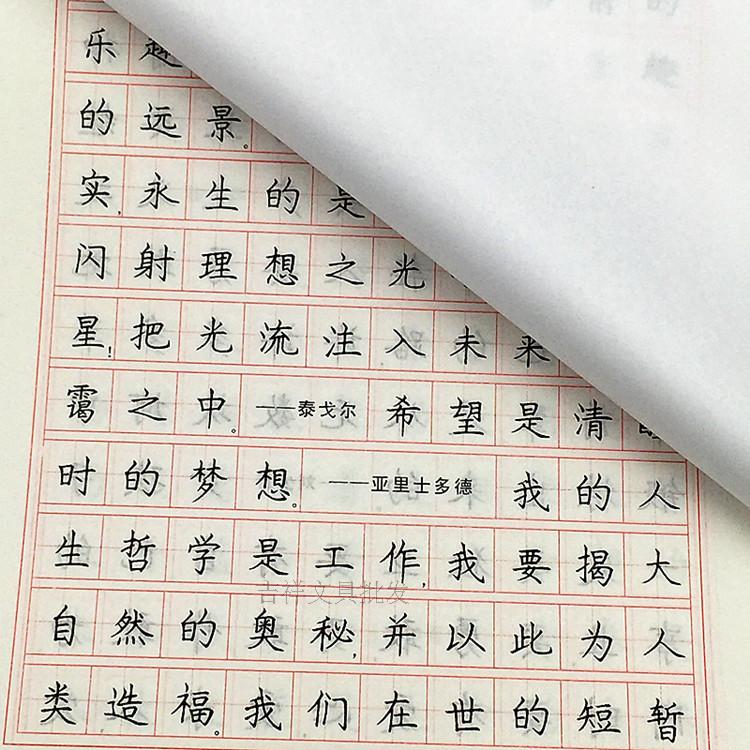 乐趣
的远景。
实,永生的是
闪射理想之光
星!把光流注入未来
霭之中。——泰戈尔 希望是清
时的梦想。——亚里士多德 我的人
生哲学是工作,我要揭大
自然的奥秘,并以此为人
类造福。我们在世的短暂
吉祥文具批发